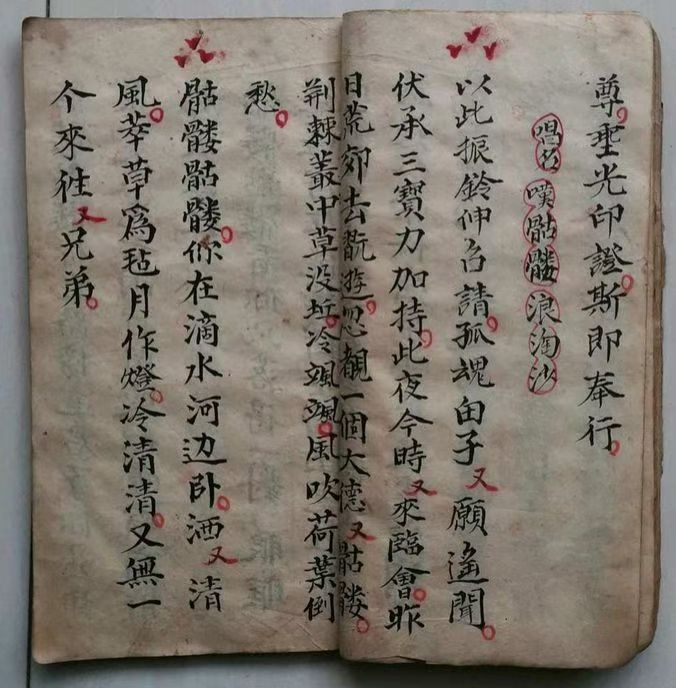 尊聖光印證斯即奉行
唱名嘆骷髏浪淘沙
以此振鈴伸召請孤魂由子又願遙聞
伏承三寶力加持此夜今時又來臨會昨
日荒郊去翫遊忽觀一個大德又骷髏
荆棘叢中草没坵冷颼颼風吹荷葉倒
愁
骷髏骷髏你在滴水河边卧洒又清
風萃草爲毡月作燈冷清清又無一
个來徃又兄弟